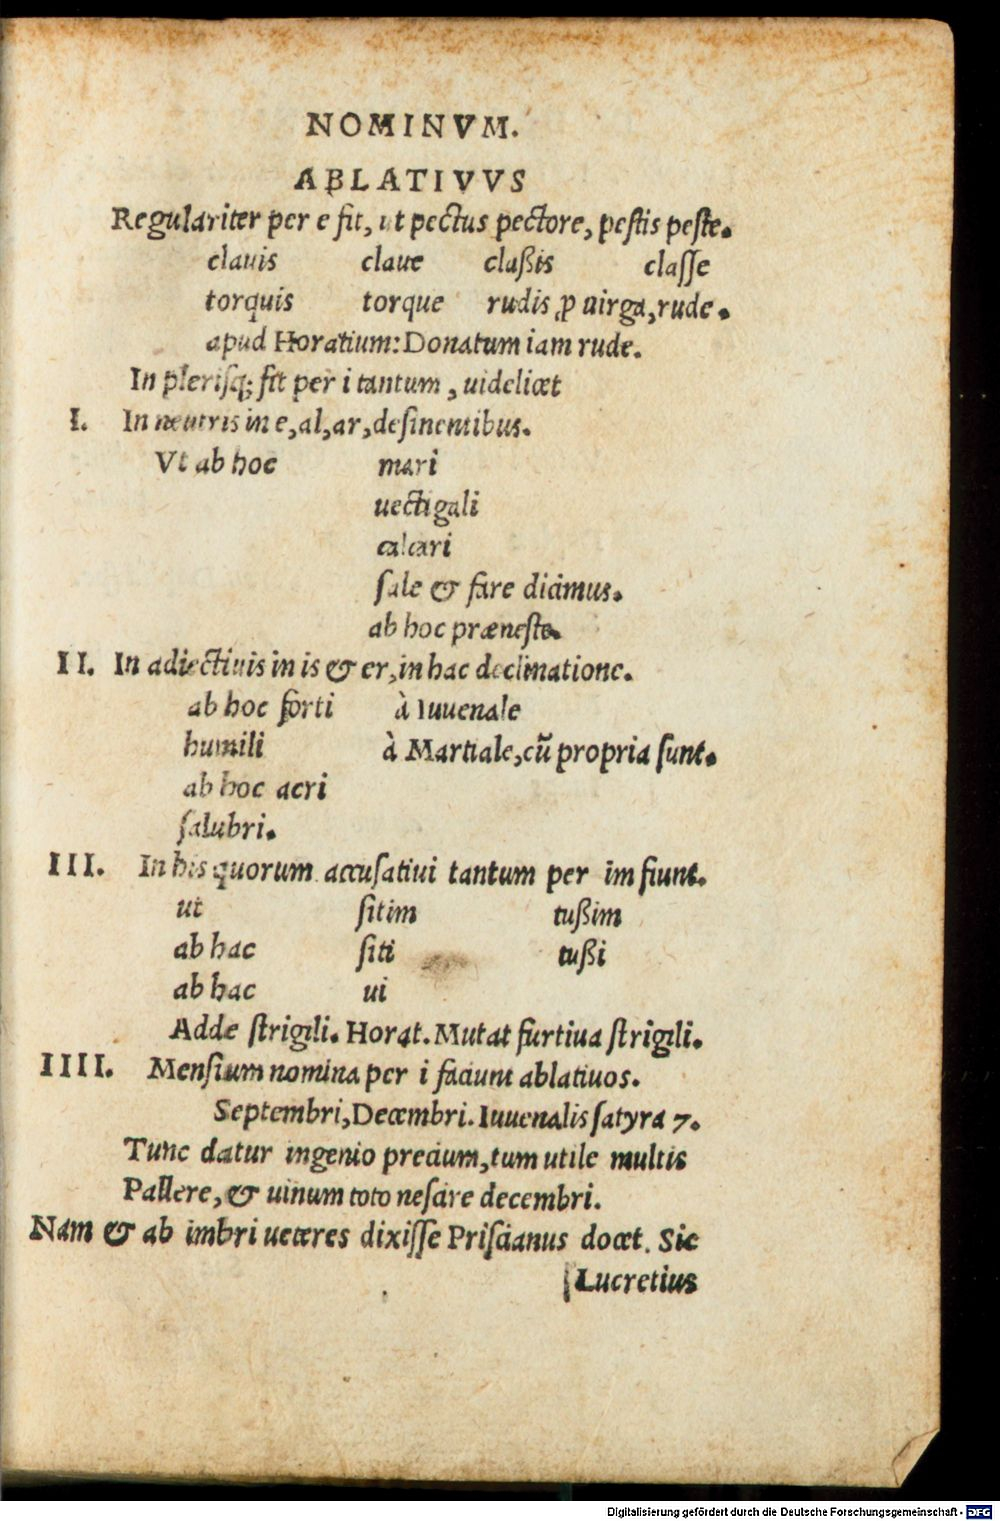 NOMINVM.
ABLATIVVS
Regulariter per e fit, ut pectus pectore, pestis peste.
clauis claue claßis classe
torquis torque rudis ꝓ uirga, rude.
apud Horatium: Donatum iam rude.
In plerisq; fit per i tantum, uidelicet
I. In neutris in e, al, ar, desinentibus.
Vt ab hoc mari
uectigali
calcari
sale & fare dicimus.
ab hoc præneste.
II. In adiectiuis in is & er, in hac declinatione.
ab hoc forti à Iuuenale
humili à Martiale, cū propria sunt.
ab hoc acri
salubri.
III. In his quorum accusatiui tantum per im fiunt.
ut sitim tußim
ab hac siti tußi
ab hac ui
Adde strigili. Horat. Mutat furtiua strigili.
IIII. Mensium nomina per i faciunt ablatiuos.
Septembri, Decembri. Iuuenalis satyra 7.
Tunc datur ingenio precium, tum utile multis
Pallere, & uinum toto nescire decembri.
Nam & ab imbri ueteres dixisse Priscianus docet. Sic
Lucretius
Digitalisierung gefördert durch die Deutsche Forschungsgemeinschaft - DFG